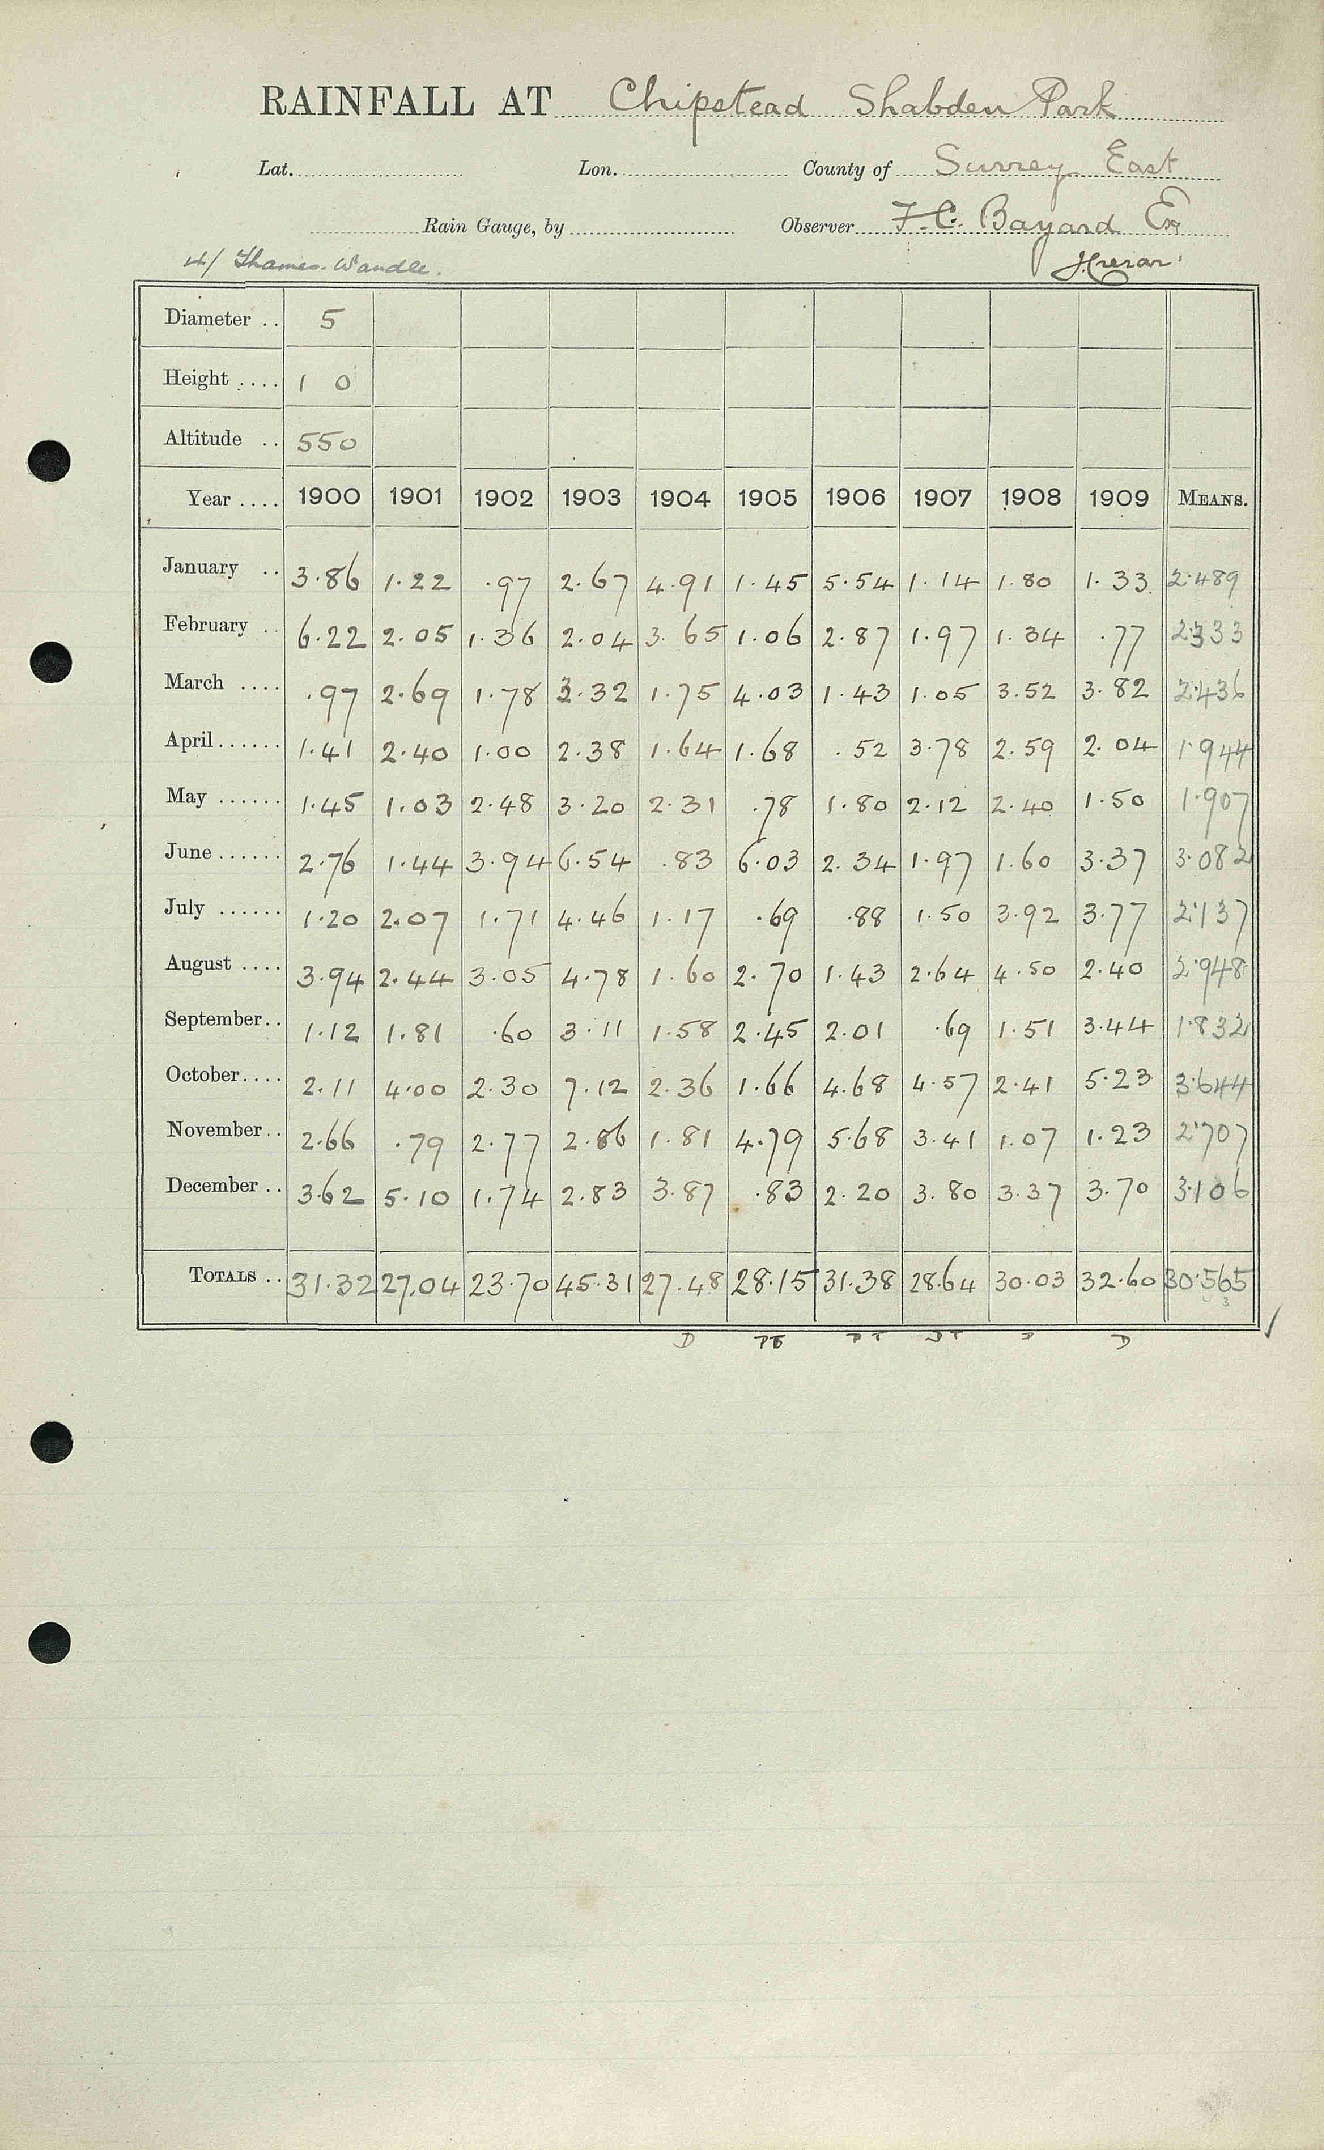 RAINFALL AT Chipstead Shabden Park
Lat. Lon. County of Surrey East
Rain Gauge, by Observer F. C. Bayard Esq
4/ Thames. Wandle.
Diameter .. 5
Height .... 1 0
Altitude .. 550
Year .... 1900 1901 1902 1903 1904 1905 1906 1907 1908 1909 MEANS.
January .. 3.86 1.22 .97 2.67 4.91 1.45 5.54 1.14 1.80 1.33 2.489
February .. 6.22 2.05 1.36 2.04 3.65 1.06 2.87 1.97 1.34 .77 2.333
March .... .97 2.69 1.78 3.32 1.75 4.03 1.43 1.05 3.52 3.82 2.436
April...... 1.41 2.40 1.00 2.38 1.64 1.68 .52 3.78 2.59 2.04 1.944
May ...... 1.45 1.03 2.48 3.20 2.31 .78 1.80 2.12 2.40 1.50 1.907
June ...... 2.76 1.44 3.94 6.54 .83 6.03 2.34 1.97 1.60 3.37 3.082
July ...... 1.20 2.07 1.71 4.46 1.17 .69 .88 1.50 3.92 3.77 2.137
August .... 3.94 2.44 3.05 4.78 1.60 2.70 1.43 2.64 4.50 2.40 2.948
September.. 1.12 1.81 .60 3.11 1.58 2.45 2.01 .69 1.51 3.44 1.832
October.... 2.11 4.00 2.30 7.12 2.36 1.66 4.68 4.57 2.41 5.23 3.644
November.. 2.66 .79 2.77 2.86 1.81 4.79 5.68 3.41 1.07 1.23 2.707
December .. 3.62 5.10 1.74 2.83 3.87 .83 2.20 3.80 3.37 3.70 3.106
TOTALS .. 31.32 27.04 23.70 45.31 27.48 28.15 31.38 28.64 30.03 32.60 30.565
3
D D